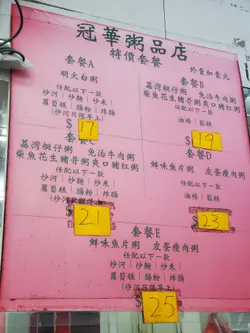 冠華粥品店
特價套餐
外賣加壹元
套餐A
明火白粥
任配以下一款
炒河｜炒麵｜炒米
蘿蔔糕｜腸粉｜炸腸
$17
套餐B
荔灣艇仔粥 免治牛肉粥
柴魚花生豬骨粥 爽口豬紅粥
任配以下一款
油條｜鬆糕
$19
套餐C
荔灣艇仔粥 免治牛肉粥
柴魚花生豬骨粥 爽口豬紅粥
任配以下一款
炒河｜炒麵｜炒米
蘿蔔糕｜腸粉｜炸腸
$21
套餐D
鮮味魚片粥 皮蛋瘦肉粥
任配以下一款
油條｜鬆糕
$23
套餐E
鮮味魚片粥 皮蛋瘦肉粥
任配以下一款
炒河｜炒麵｜炒米
蘿蔔糕｜腸粉｜炸腸
$25